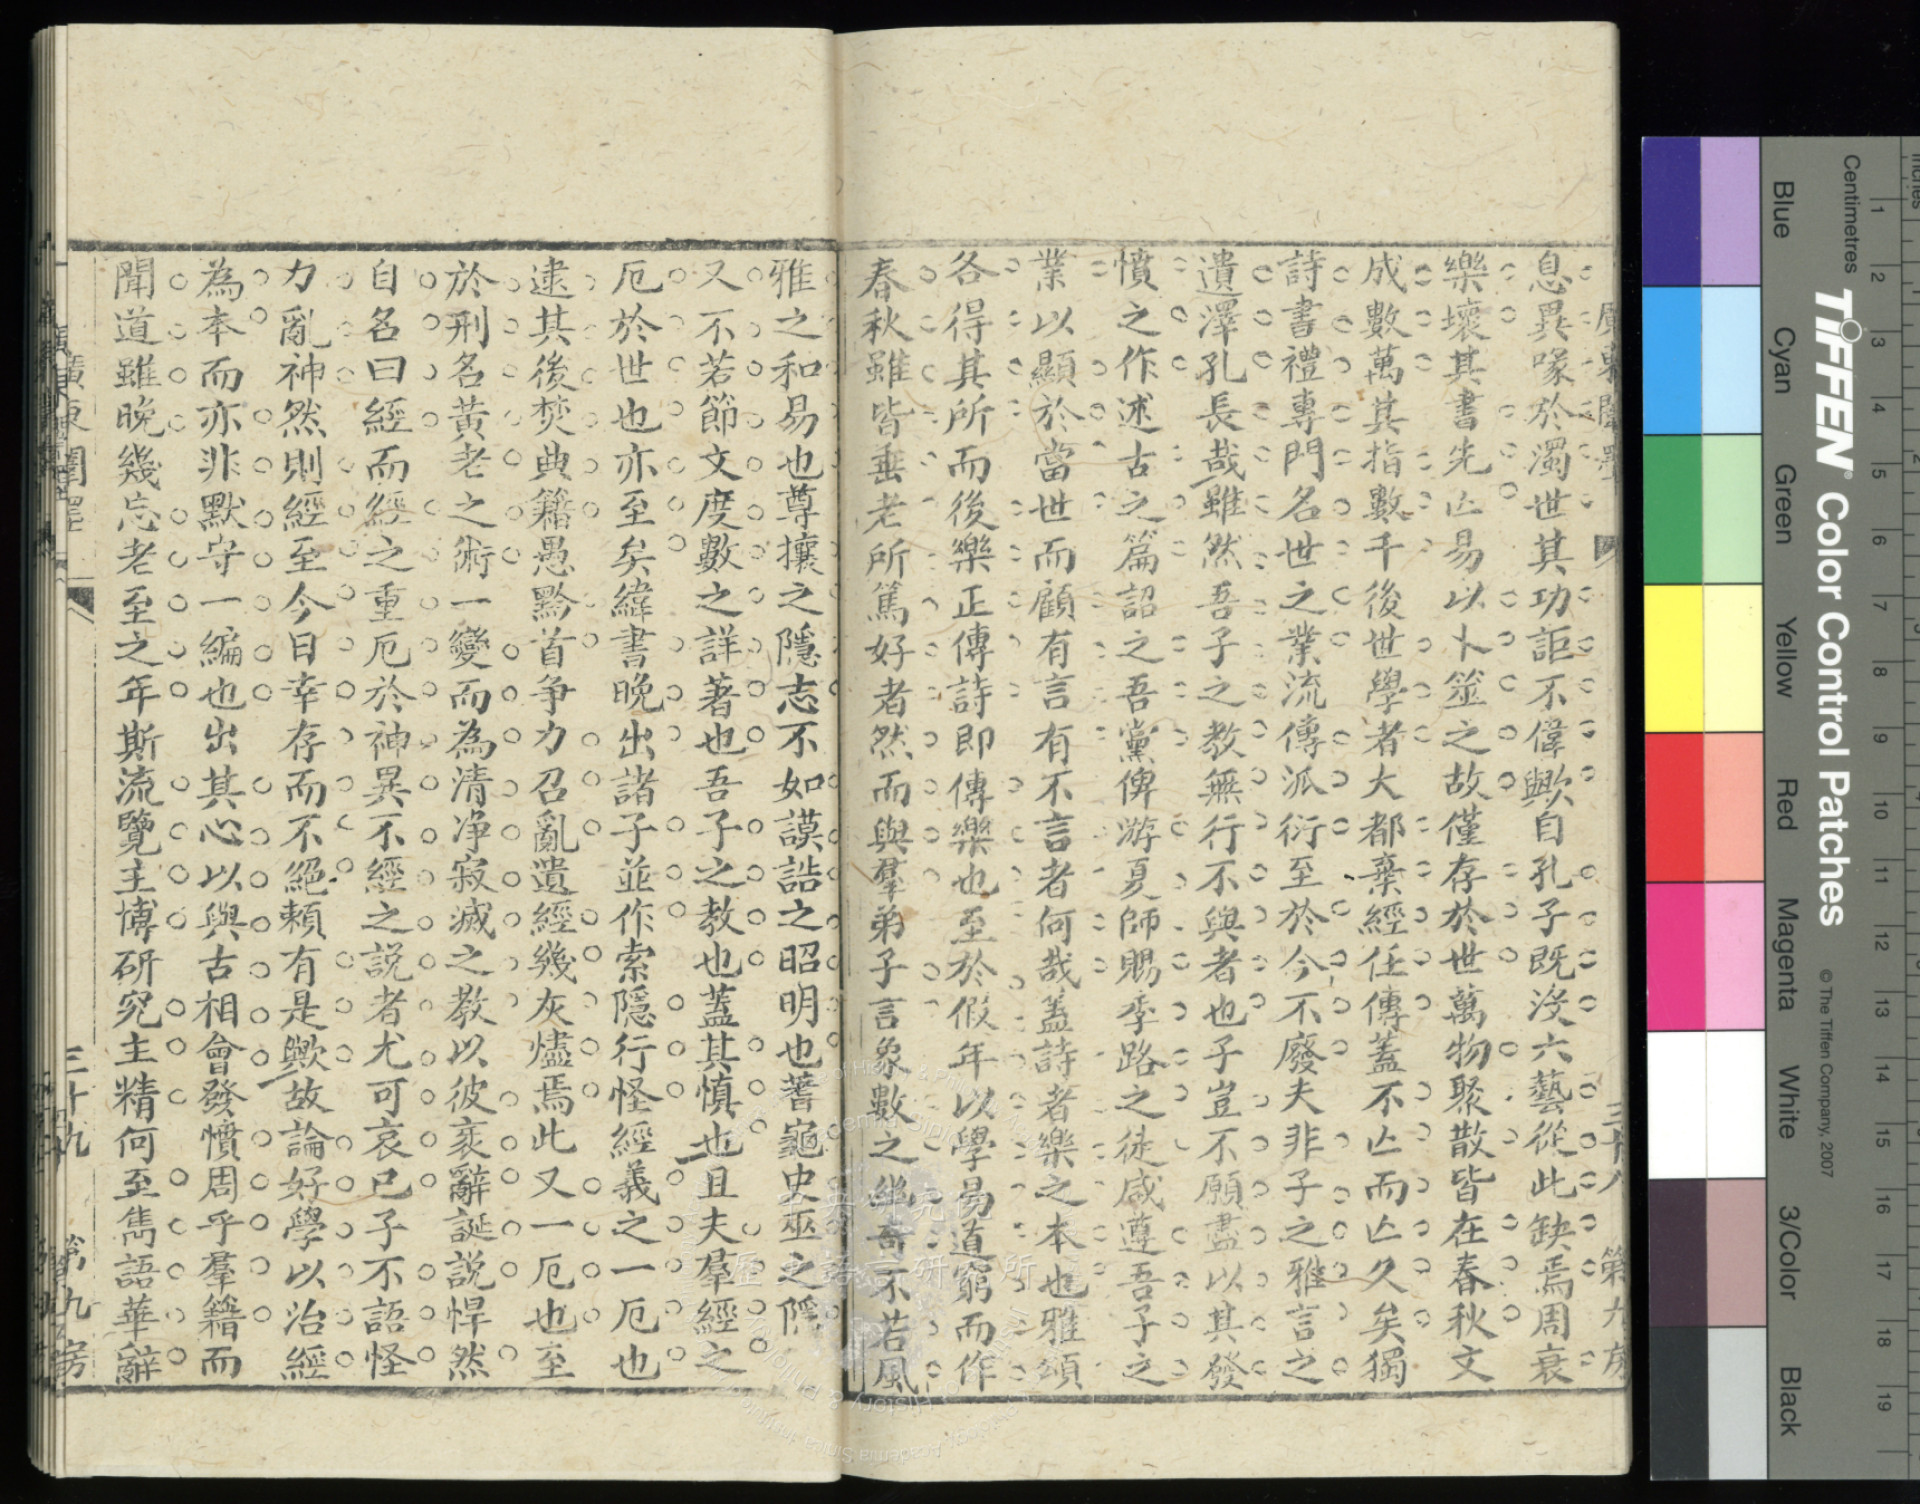 息異喙於濁世其功詎不偉歟自孔子既沒六藝從此缺焉周衰
樂壞其書先亾易以卜筮之故僅存於世萬物聚散皆在春秋文
成數萬其指數千後世學者大都棄經任傳蓋不亾而亾久矣獨
詩書禮專門名世之業流傳派衍至於今不廢夫非子之雅言之
遺澤孔長哉雖然吾子之教無行不與者也子豈不願盡以其發
憤之作述古之篇詔之吾黨俾游夏師賜季路之徒咸遵吾子之
業以顯於當世而顧有言有不言者何哉蓋詩者樂之本也雅頌
各得其所而後樂正傳詩即傳樂也至於假年以學易道窮而作
春秋雖皆垂老所篤好者然而與羣弟子言象數之繼奇不若風
雅之和易也尊攘之隱志不如謨誥之昭明也蓍龜史巫之隱
又不若節文度數之詳著也吾子之教也蓋其慎也且夫羣經之
厄於世也亦至矣緯書晚出諸子並作索隱行怪經義之一厄也
逮其後焚典籍愚黔首爭力召亂遺經幾灰燼焉此又一厄也至
於刑名黃老之術一變而為清淨寂滅之教以彼衺辭誕說悍然
自名曰經而經之重厄於神異不經之說者尤可哀已子不語怪
力亂神然則經至今日幸存而不絕賴有是歟故論好學以治經
為本而亦非默守一編也出其心以與古相會發憤周乎羣籍而
聞道雖晚幾忘老至之年斯流覽主博研究主精何至雋語華辭
廣東闈墨
三十九
第九房
三十八
第九房